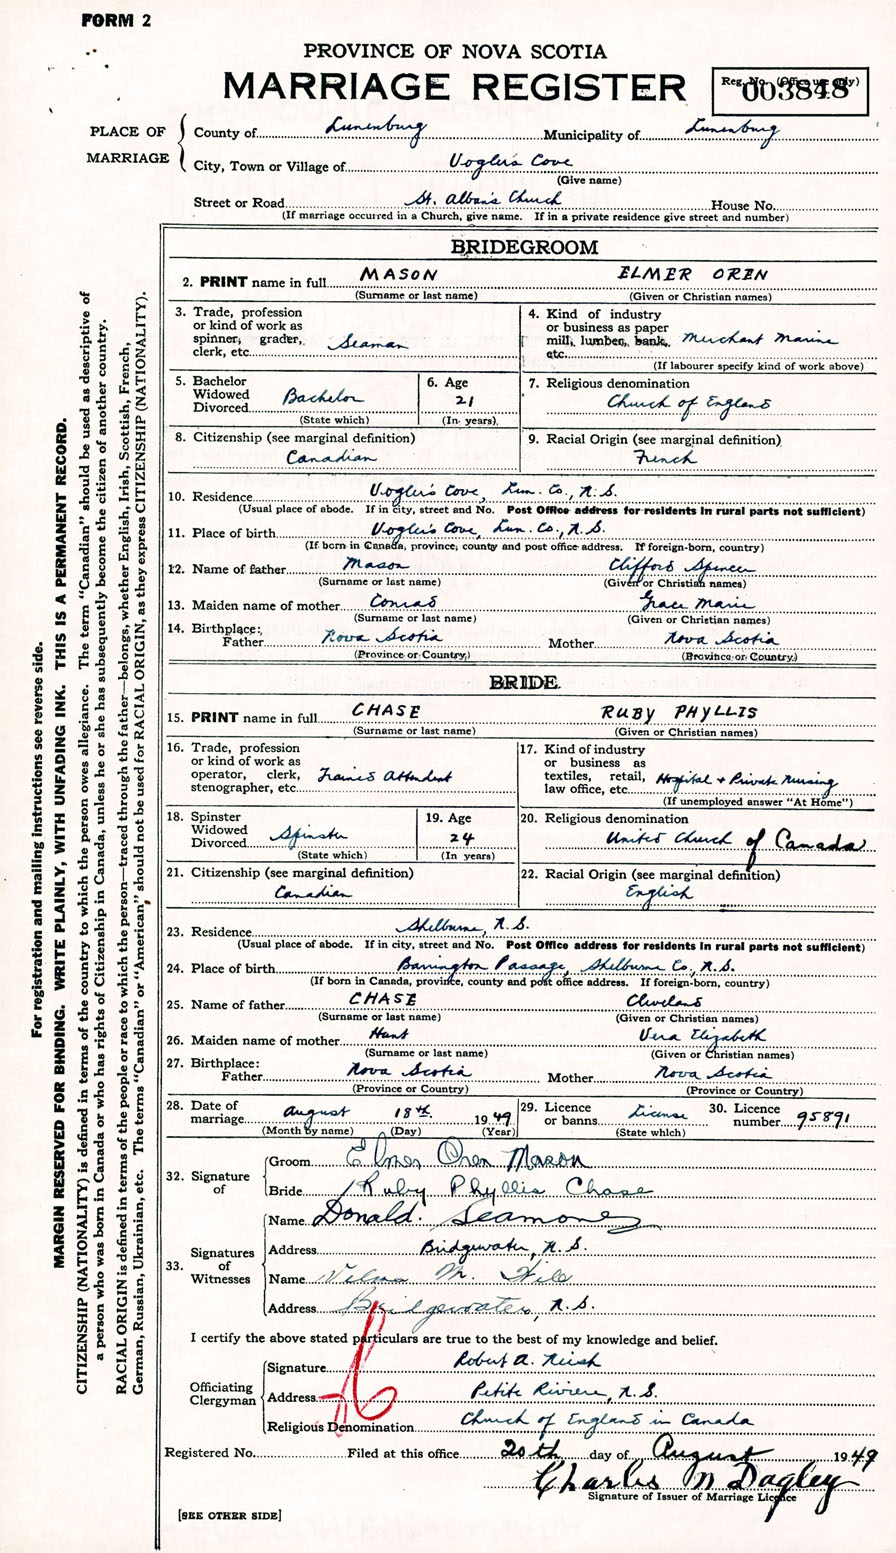 FORM 2
PROVINCE OF NOVA SCOTIA
MARRIAGE REGISTER
Reg. No. (Office use only)
003848
PLACE OF MARRIAGE
County of Lunenburg Municipality of Lunenburg
City, Town or Village of Vogler's Cove
(Give name)
Street or Road St. Alban's Church House No.
(If marriage occurred in a Church, give name. If in a private residence give street and number)
BRIDEGROOM
2. PRINT name in full MASON ELMER OREN
(Surname or last name) (Given or Christian names)
3. Trade, profession or kind of work as spinner, grader, clerk, etc. Seaman
4. Kind of industry or business as paper mill, lumber, bank, etc. Merchant Marine
(If labourer specify kind of work above)
5. Bachelor Widowed Divorced Bachelor
(State which)
6. Age 21
(In years)
7. Religious denomination
Church of England
8. Citizenship (see marginal definition)
Canadian
9. Racial Origin (see marginal definition)
French
10. Residence Vogler's Cove, Lun. Co., N.S.
(Usual place of abode. If in city, street and No. Post Office address for residents in rural parts not sufficient)
11. Place of birth Vogler's Cove, Lun. Co., N.S.
(If born in Canada, province, county and post office address. If foreign-born, country)
12. Name of father Mason Clifford Spencer
(Surname or last name) (Given or Christian names)
13. Maiden name of mother Conrad Grace Marie
(Surname or last name) (Given or Christian names)
14. Birthplace:
Father Nova Scotia Mother Nova Scotia
(Province or Country) (Province or Country)
BRIDE
15. PRINT name in full CHASE RUBY PHYLLIS
(Surname or last name) (Given or Christian names)
16. Trade, profession or kind of work as operator, clerk, stenographer, etc. Trained Attendent
17. Kind of industry or business as textiles, retail, law office, etc. Hospital + Private Nursing
(If unemployed answer "At Home")
18. Spinster Widowed Divorced Spinster
(State which)
19. Age 24
(In years)
20. Religious denomination
United Church of Canada
21. Citizenship (see marginal definition)
Canadian
22. Racial Origin (see marginal definition)
English
23. Residence Shelburne, N.S.
(Usual place of abode. If in city, street and No. Post Office address for residents in rural parts not sufficient)
24. Place of birth Barrington Passage, Shelburne Co., N.S.
(If born in Canada, province, county and post office address. If foreign-born, country)
25. Name of father CHASE Cleveland
(Surname or last name) (Given or Christian names)
26. Maiden name of mother Hunt Vera Elizabeth
(Surname or last name) (Given or Christian names)
27. Birthplace:
Father Nova Scotia Mother Nova Scotia
(Province or Country) (Province or Country)
28. Date of marriage August 18th 1949
(Month by name) (Day) (Year)
29. Licence or banns License
(State which)
30. Licence number 95891
32. Signature of
Groom Elmer Oren Mason
Bride Ruby Phyllis Chase
33. Signatures of Witnesses
Name Donald Seamone
Address Bridgewater, N.S.
Name Velma M. Hile
Address Bridgewater, N.S.
I certify the above stated particulars are true to the best of my knowledge and belief.
Officiating Clergyman
Signature Robert A. Nish
Address Petite Riviere, N.S.
Religious Denomination Church of England in Canada
Registered No. Filed at this office 20th day of August 1949
Charles N Dagley
Signature of Issuer of Marriage Licence
[SEE OTHER SIDE]
For registration and mailing instructions see reverse side.
MARGIN RESERVED FOR BINDING. WRITE PLAINLY, WITH UNFADING INK. THIS IS A PERMANENT RECORD.
CITIZENSHIP (NATIONALITY) is defined in terms of the country to which the person owes allegiance. The term "Canadian" should be used as descriptive of
a person who was born in Canada or who has rights of Citizenship in Canada, unless he or she has subsequently become the citizen of another country.
RACIAL ORIGIN is defined in terms of the people or race to which the person—traced through the father—belongs, whether English, Irish, Scottish, French,
German, Russian, Ukrainian, etc. The terms "Canadian" or "American" should not be used for RACIAL ORIGIN, as they express CITIZENSHIP (NATIONALITY).